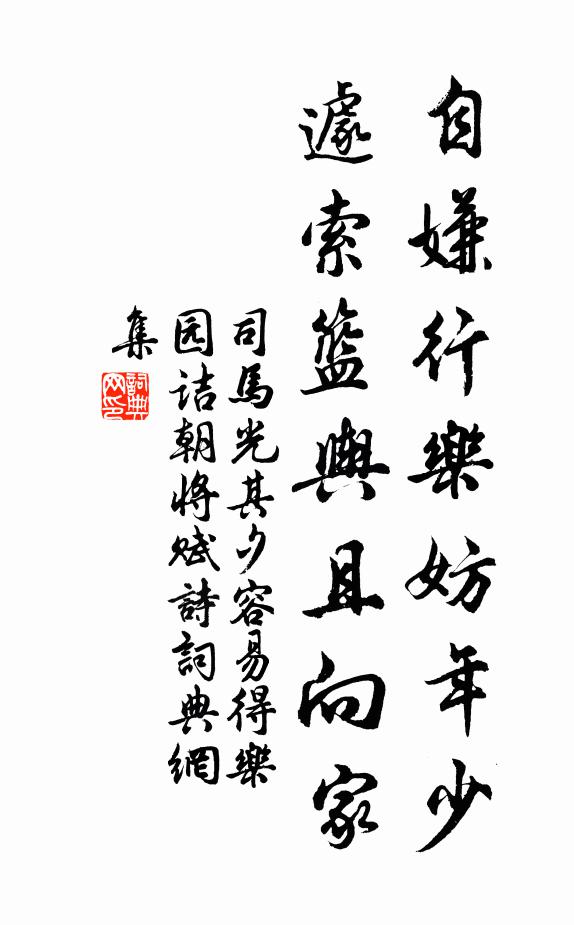 自嫌行樂妨年少
遽索籃輿且向家
司馬光其夕容易得樂
园诘朝將赋詩詞典網
集
詞典
网印